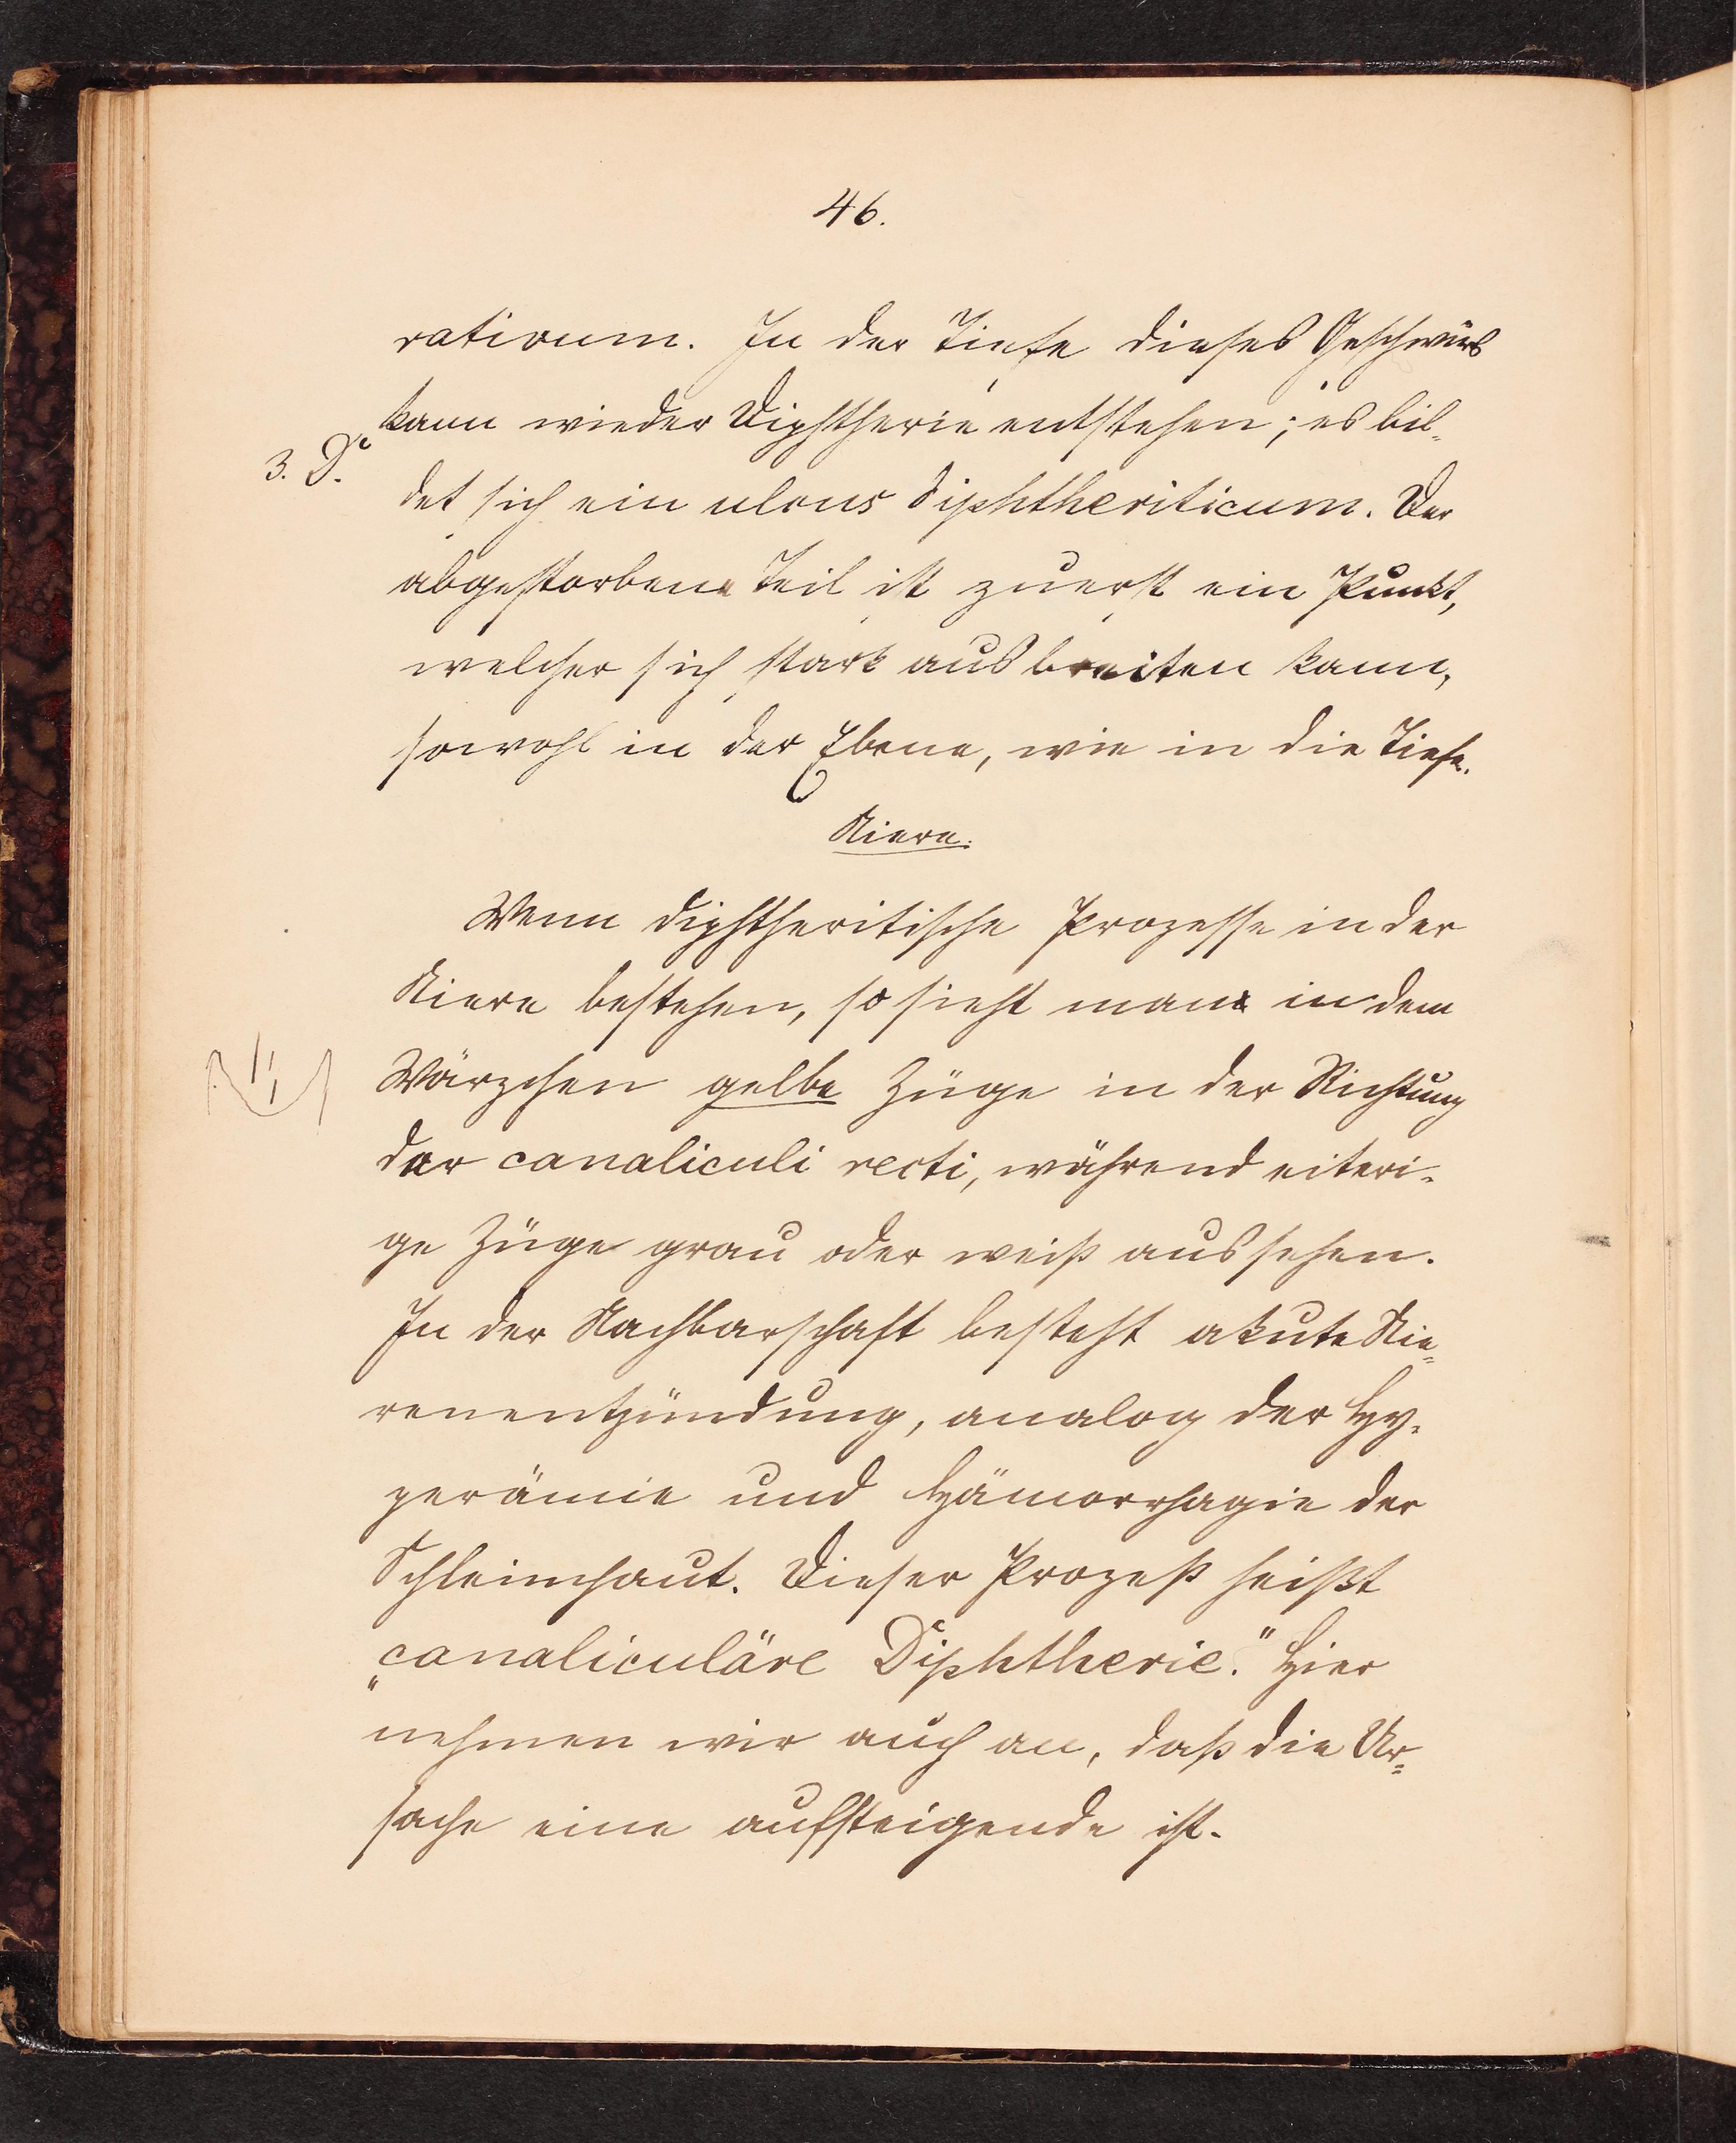 46.
rativum. In der Tiefe dieses Geschwürs
kann wieder Diphtherie entstehen; es bil-
3. D.
det sich ein ulcus diphtheriticum. Der
abgestorbene Teil ist zuerst ein Punkt,
welcher sich stark ausbreiten kann,
sowohl in der Ebene, wie in die Tiefe.
Niere.
Wenn diphtheritische Prozesse in der
Niere bestehen, so sieht man in dem
Wärzchen gelbe Züge in der Richtung
der canaliculi recti, während eiteri-
ge Züge grau oder weiß aussehen.
In der Nachbarschaft besteht akute Nie=
renentzündung, analog der Hy-
perämie und Hämorrhagie der
Schleimhaut. Dieser Prozeß heißt
„canaliculäre Diphtherie." Hier
nehmen wir auch an, daß die Ur=
sache eine aufsteigende ist.